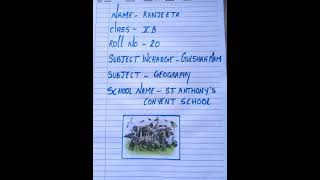 NAME - RANJEETA
CLASS - V B
ROLL NO - 20
SUBJECT INCHARGE - GULSHAN MAM
SUBJECT - GEOGRAPHY
SCHOOL NAME - ST ANTHONY'S
CONVENT SCHOOL